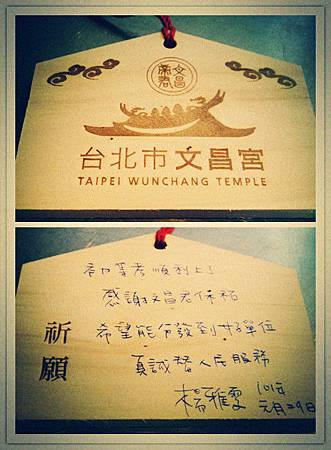 文昌
帝君
台北市文昌宮
TAIPEI WUNCHANG TEMPLE
祈願
初等考順利上了
感謝文昌君保祐
希望能分發到好單位
真誠替人民服務
楊雅雯 101年
元月29日